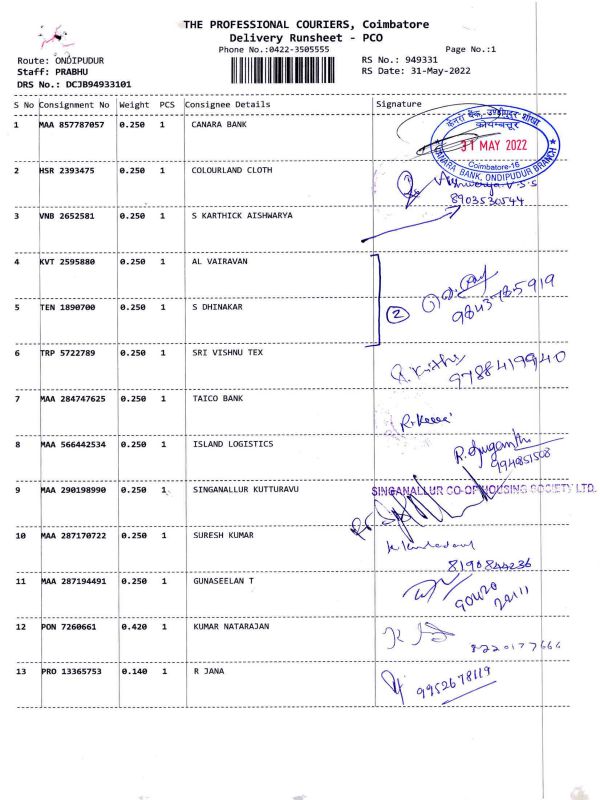 THE PROFESSIONAL COURIERS, Coimbatore
Delivery Runsheet - PCO
Phone No.:0422-3505555
Page No.:1
Route: ONDIPUDUR
RS No.: 949331
Staff: PRABHU
RS Date: 31-May-2022
DRS No.: DCJB94933101
S No Consignment No Weight PCS Consignee Details Signature
1 MAA 857787057 0.250 1 CANARA BANK
केनरा बैंक, उण्डीपुदूर शाखा
कोयम्बत्तूर
31 MAY 2022
Coimbatore-16
CANARA BANK, ONDIPUDUR BRANCH
2 HSR 2393475 0.250 1 COLOURLAND CLOTH
Aishwarya.V.S.S
8903530544
3 VNB 2652581 0.250 1 S KARTHICK AISHWARYA
4 KVT 2595880 0.250 1 AL VAIRAVAN
5 TEN 1890700 0.250 1 S DHINAKAR
2
9843785919
6 TRP 5722789 0.250 1 SRI VISHNU TEX
9788419940
7 TAICO BANK MAA 284747625 0.250 1
8 MAA 566442534 0.250 1 ISLAND LOGISTICS
R. Suganthi
9940851508
9 MAA 290198990 0.250 1 SINGANALLUR KUTTURAVU
SINGANALLUR CO-OP HOUSING SOCIETY LTD.
10 MAA 287170722 0.250 1 SURESH KUMAR
8190844236
11 MAA 287194491 0.250 1 GUNASEELAN T
12 PON 7260661 0.420 1 KUMAR NATARAJAN
8220177666
13 PRO 13365753 0.140 1 R JANA
9952678119